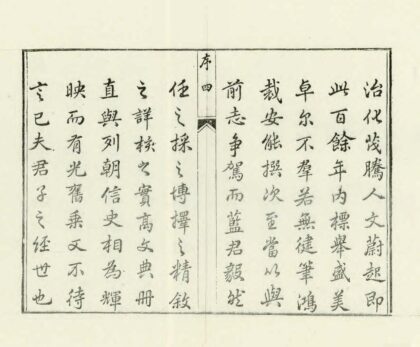 治化茂騰人文蔚起即
此百餘年內標舉盛美
卓尔不羣若無健筆鴻
裁安能撰次至當以與
前志争駕而藍君毅然
序四
任之採之博擇之精敘
之詳核之實高文典冊
直與列朝信史相為輝
映而有光舊乘又不待
言已夫君子之經世也